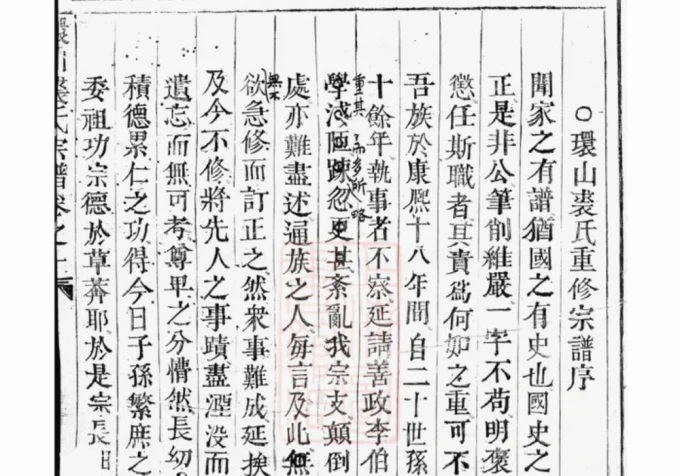 ○環山裘氏重修宗譜序
聞家之有譜猶國之有史也國史之
正是非公筆削維嚴一字不苟明褒
懲任斯職者其責爲何如之重可不
吾族於康熙十八年間自二十世孫
十餘年執事者不察延請善政李伯
學淺陋踈忽更甚紊亂我宗支顛倒
重其
而多所略
處亦難盡述遍族之人每言及此無
無不
欲急修而訂正之然衆事難成延挨
及今不修將先人之事蹟盡湮没而
遺忘而無可考尊卑之分懵然長幼
積德累仁之功得今日子孫繁庶之
委祖功宗德於草莽耶於是宗長
裘氏宗譜卷之